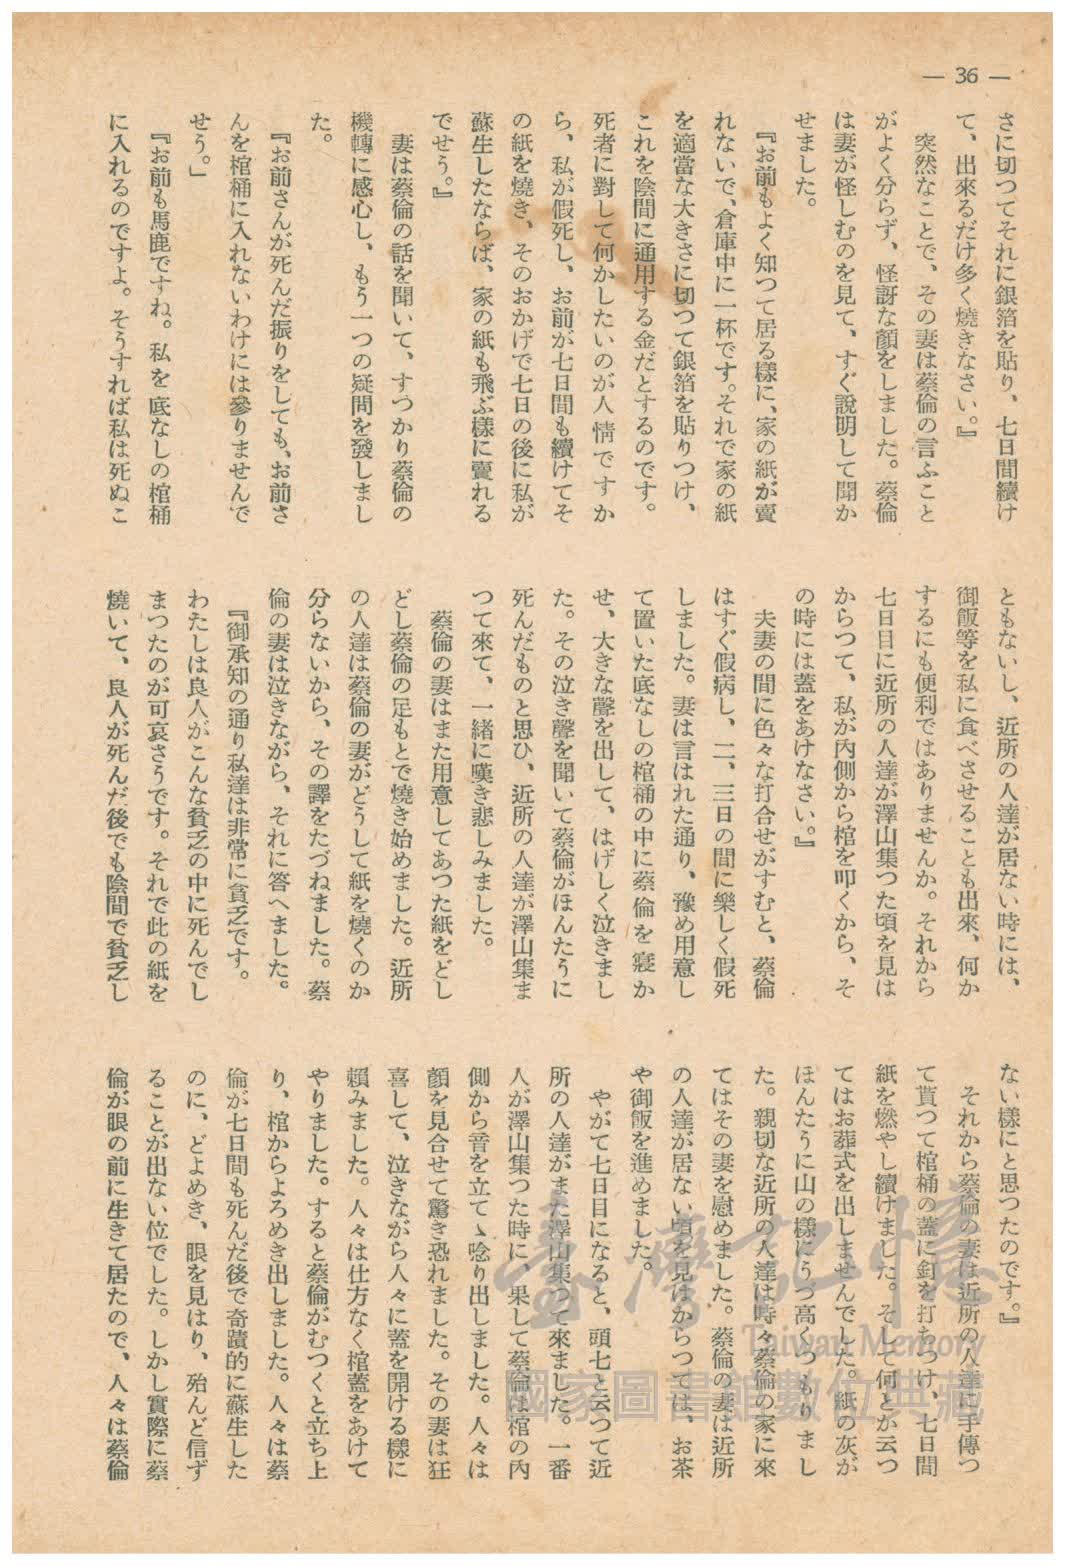 — 36 —
さに切つてそれに銀箔を貼り、七日間續け
て、出來るだけ多く燒きなさい。』
突然なことで、その妻は蔡倫の言ふこと
がよく分らず、怪訝な顏をしました。蔡倫
は妻が怪しむのを見て、すぐ說明して聞か
せました。
『お前もよく知つて居る樣に、家の紙が賣
れないで、倉庫中に一杯です。それで家の紙
を適當な大きさに切つて銀箔を貼りつけ、
これを陰間に通用する金だとするのです。
死者に對して何かしたいのが人情ですか
ら、私が假死し、お前が七日間も續けてそ
の紙を燒き、そのおかげで七日の後に私が
蘇生したならば、家の紙も飛ぶ樣に賣れる
でせう。』
妻は蔡倫の話を聞いて、すつかり蔡倫の
機轉に感心し、もう一つの疑問を發しまし
た。
『お前さんが死んだ振りをしても、お前さ
んを棺桶に入れないわけには參りませんで
せう。」
『お前も馬鹿ですね。私を底なしの棺桶
に入れるのですよ。そうすれば私は死ぬこ
ともないし、近所の人達が居ない時には、
御飯等を私に食べさせることも出來、何か
するにも便利ではありませんか。それから
七日目に近所の人達が澤山集つた頃を見は
からつて、私が內側から棺を叩くから、そ
の時には蓋をあけなさい。』
夫妻の間に色々な打合せがすむと、蔡倫
はすぐ假病し、二、三日の間に樂しく假死
しました。妻は言はれた通り、豫め用意し
て置いた底なしの棺桶の中に蔡倫を寢か
せ、大きな聲を出して、はげしく泣きまし
た。その泣き聲を聞いて蔡倫がほんたうに
死んだものと思ひ、近所の人達が澤山集ま
つて來て、一緒に嘆き悲しみました。
蔡倫の妻はまた用意してあつた紙をどし
どし蔡倫の足もとで燒き始めました。近所
の人達は蔡倫の妻がどうして紙を燒くのか
分らないから、その譯をたづねました。蔡
倫の妻は泣きながら、それに答へました。
『御承知の通り私達は非常に貧乏です。
わたしは良人がこんな貧乏の中に死んでし
まつたのが可哀さうです。それで此の紙を
燒いて、良人が死んだ後でも陰間で貧乏し
ない樣にと思つたのです。』
それから蔡倫の妻は近所の人達に手傳つ
て貰つて棺桶の蓋に釘を打ちつけ、七日間
紙を燃やし續けました。そして何とか云つ
てはお葬式を出しませんでした。紙の灰が
ほんたうに山の樣にうづ高くつもりまし
た。親切な近所の人達は時々蔡倫の家に來
てはその妻を慰めました。蔡倫の妻は近所
の人達が居ない頃を見はからつては、お茶
や御飯を進めました。
やがて七日目になると、頭七と云つて近
所の人達がまた澤山集つて來ました。一番
人が澤山集つた時に、果して蔡倫は棺の內
側から音を立てゝ唸り出しました。人々は
顏を見合せて驚き恐れました。その妻は狂
喜して、泣きながら人々に蓋を開ける樣に
賴みました。人々は仕方なく棺蓋をあけて
やりました。すると蔡倫がむつくと立ち上
り、棺からよろめき出しました。人々は蔡
倫が七日間も死んだ後で奇蹟的に蘇生した
のに、どよめき、眼を見はり、殆んど信ず
ることが出ない位でした。しかし實際に蔡
倫が眼の前に生きて居たので、人々は蔡倫
臺灣記憶
Taiwan Memory
國家圖書館數位典藏